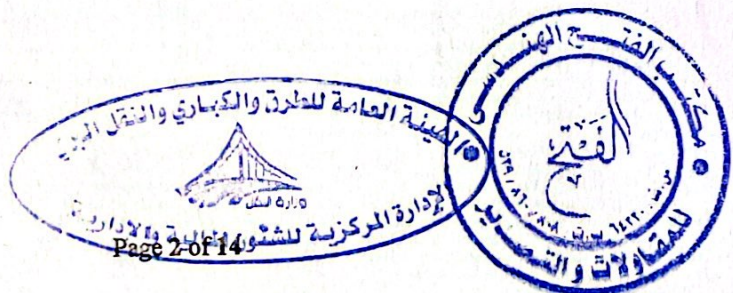 الهيئة العامة للطرق والكباري والنقل البري
وزارة النقل
الإدارة المركزية للشئون المالية والادارية
Page 2 of 14
مكتب الفتح الهندسى
الفتح
للمقاولات والتصدير